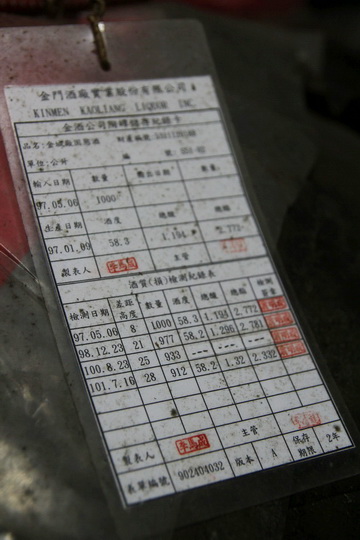 金門酒廠實業股份有限公司
KINMEN KAOLIANG LIQUOR INC.
金酒公司陶罈儲存紀錄卡
品名: 財產編號
單位:公斤
輸入日期 數量 輸出日期 數量
97.05.06 1000
生產日期 酒度 總酸 總酯
97.01.09 58.3 1.194 2.772
製表人 主管
酒質(損)檢測紀錄表
檢測日期 差距高度 數量 酒度 總酸 總酯 檢測
97.05.06 8 1000 58.3 1.193 2.772
98.12.23 21 977 58.2 1.296 2.781
100.8.23 25 933 --- --- ---
101.7.16 28 912 58.2 1.32 2.332
製表人 主管 保存期限 2年
表單編號 902404032 版本 A